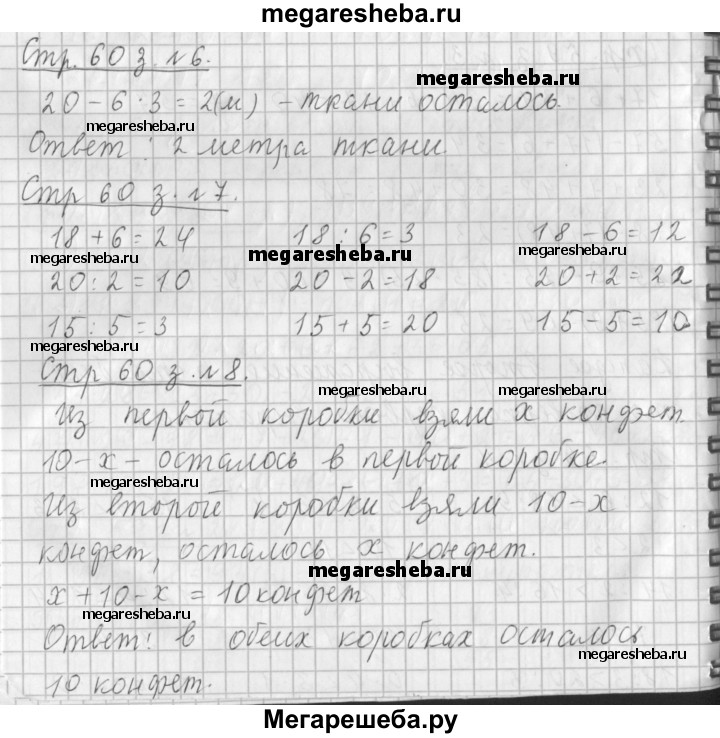 megaresheba.ru
Стр. 60 з. №6.
megaresheba.ru
20 - 6 · 3 = 2(м) - ткани осталось.
megaresheba.ru
Ответ: 2 метра ткани.
Стр 60 з. №7.
18 + 6 = 24 18 : 6 = 3 18 - 6 = 12
megaresheba.ru megaresheba.ru megaresheba.ru
20 : 2 = 10 20 - 2 = 18 20 + 2 = 22
15 : 5 = 3 15 + 5 = 20 15 - 5 = 10
megaresheba.ru
Стр 60 з. №8.
megaresheba.ru megaresheba.ru
Из первой коробки взяли x конфет
10 - x - осталось в первой коробке.
megaresheba.ru
Из второй коробки взяли 10 - x
конфет, осталось x конфет.
megaresheba.ru
x + 10 - x = 10 конфет
megaresheba.ru
Ответ: в обеих коробках осталось
megaresheba.ru
10 конфет.
Мегарешеба.ру